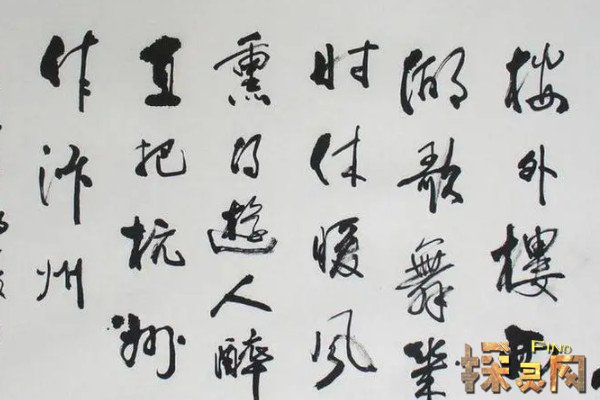 楼外樓
湖歌舞幾
时休暖风
熏得遊人醉
直把杭州
作汴州
FIND
探灵网